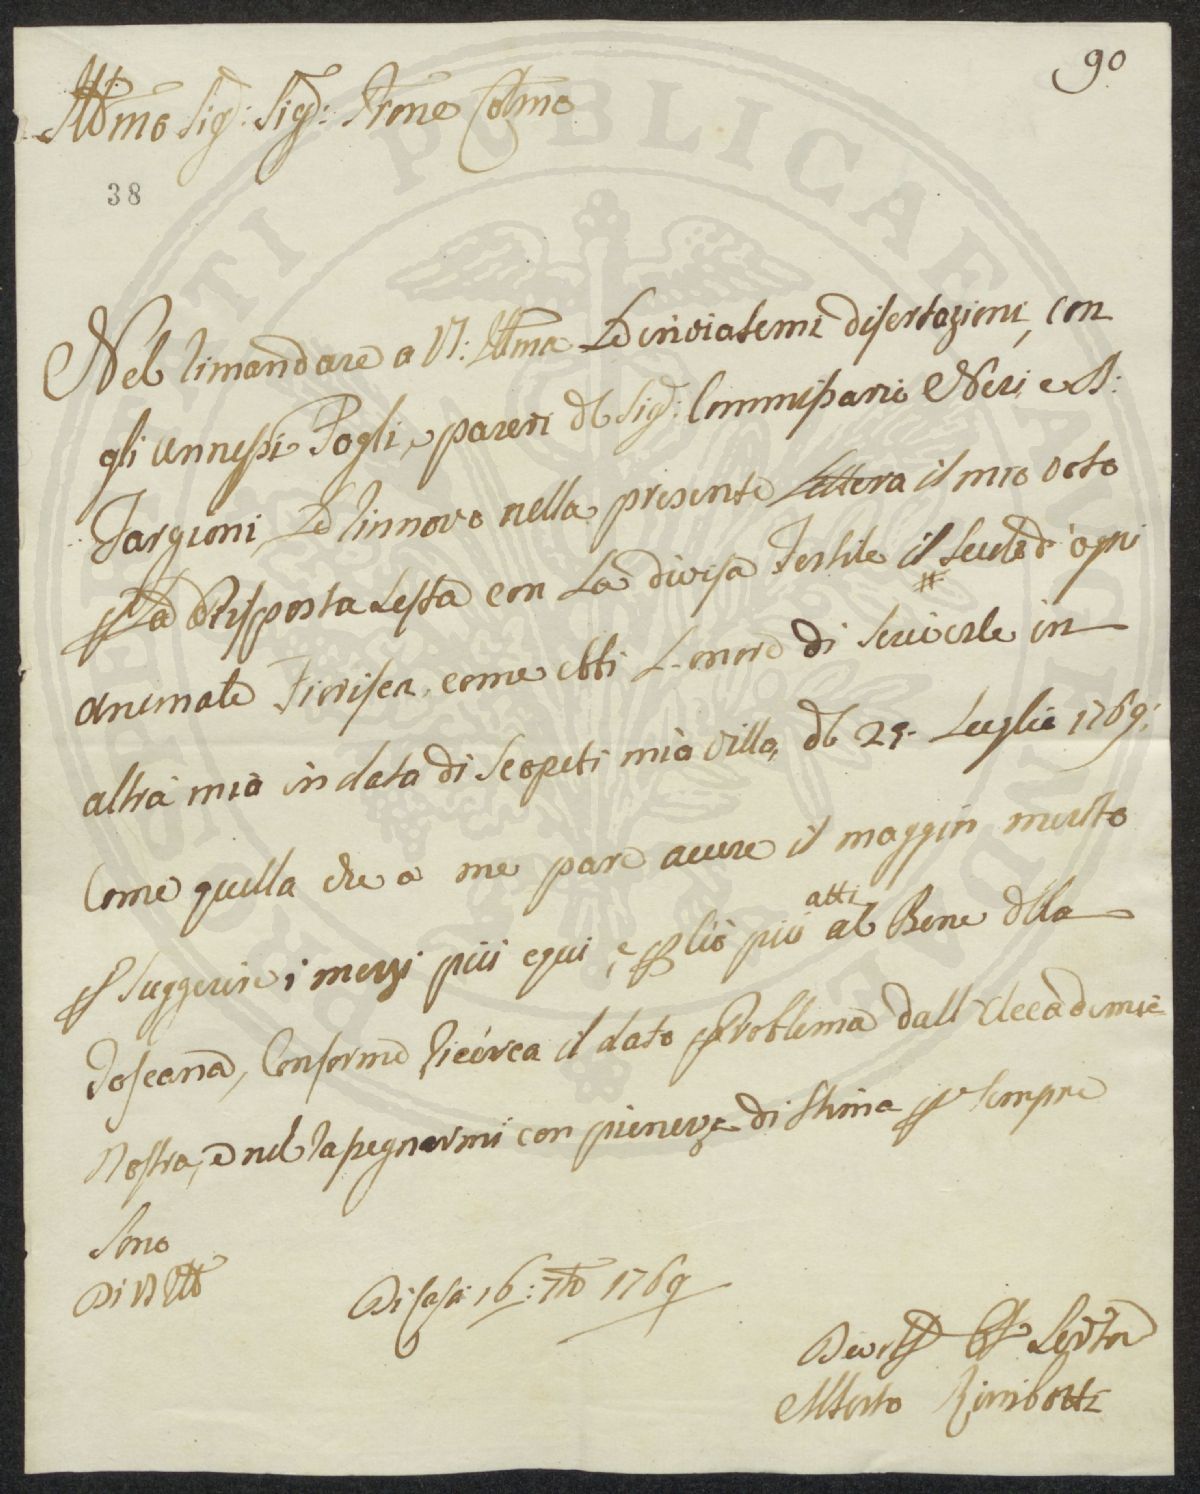 90
Illmo Sig.r Sig.r Prone Colmo
38
Nel rimandare a VS: Illma Le inviatemi disertazioni, con
gli annessi Fogli, e pareri del Sig.r Commissario Neri, e D:
Targioni, Le rinnovo nella presente Lettera il mio voto
p la Risposta Lesta con La divisa Fertile il Suolo d'ogni
animale Fiorisca, come ebbi L'onore di scriverle in
altra mia in data di Scopeti mia villa, del 25. Luglio 1769:
Come quella che a me pare avere il maggior merito
p suggerire i mezzi più equi, e p ciò più atti al Bene della
Toscana, Conforme ricerca il dato Problema dall'Accademia
Nostra, e nel rassegnarmi con pienezza di stima p sempre
Sono
Di VS Illma
Di Casa 16: 7bre 1769
Devmo Obb Servitor
Alberto Rimbotti
PUBLICAE